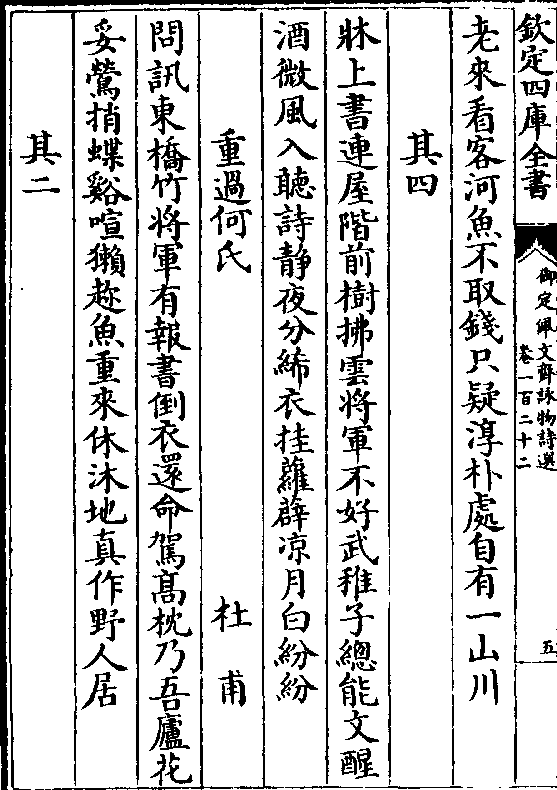 欽定四庫全書
御定佩文齋詠物詩選
卷一百二十二
五
老來看客河魚不取錢只疑淳朴處自有一山川
其四
牀上書連屋階前樹拂雲將軍不好武稚子總能文醒
酒微風入聽詩靜夜分絺衣挂蘿薜凉月白紛紛
重過何氏
杜甫
問訊東橋竹將軍有報書倒衣還命駕髙枕乃吾廬花
妥鶯捎蝶谿喧獺趂魚重來休沐地真作野人居
其二